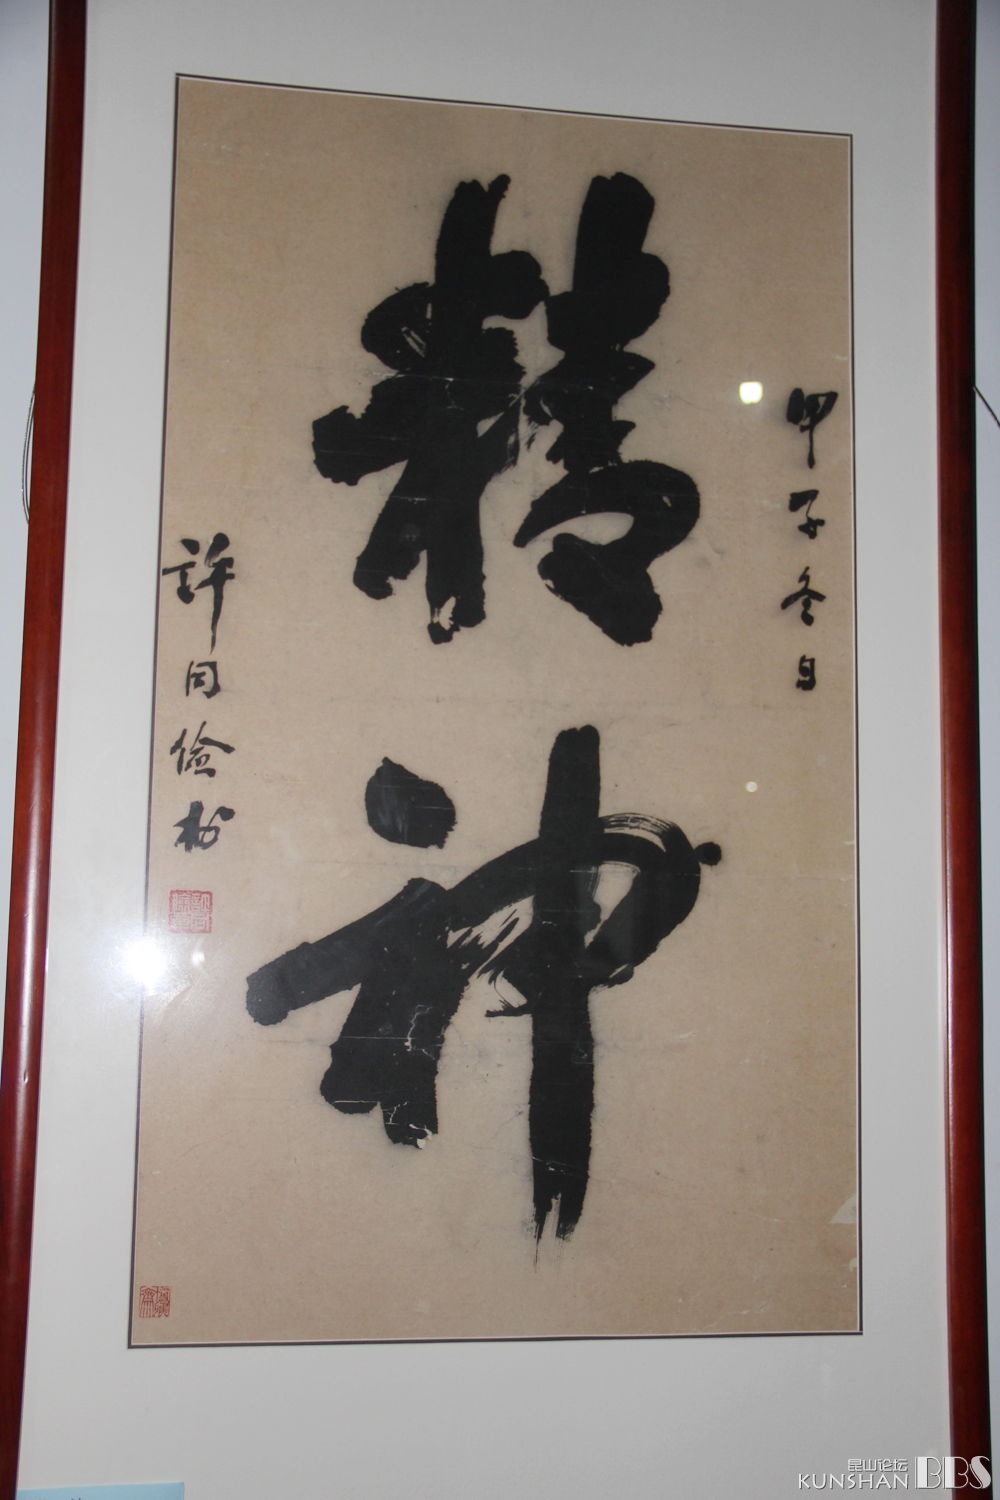 甲子冬日
精神
許同儉书
昆山论坛
KUNSHAN BBS